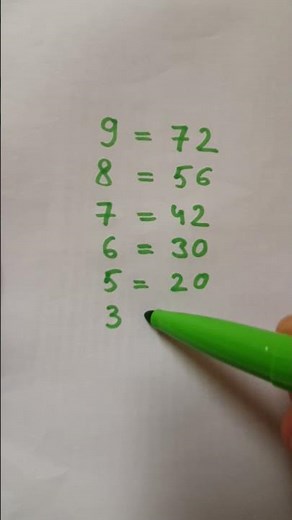 9 = 72
8 = 56
7 = 42
6 = 30
5 = 20
3